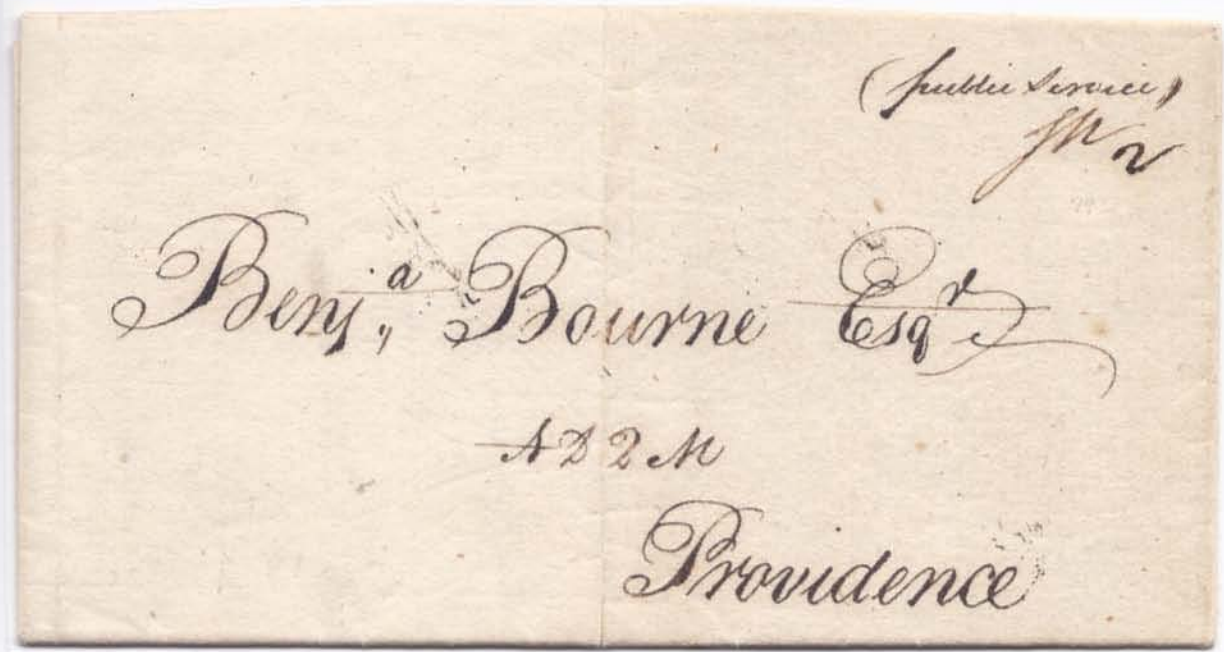 (public Service)
2
Benj.,a Bourne Esqr
A D 2 M
Providence